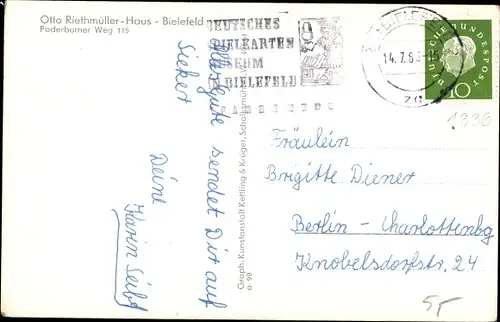 Otto Riethmüller-Haus - Bielefeld
Paderborner Weg 115
DEUTSCHES
SPIELKARTEN
MUSEUM
BIELEFELD
14.7.6
DEUTSCHE BUNDESPOST
10
1330
Alles Gute sendet Dir auf
Siekert
Deine
Karin Seibt
Graph. Kunstanstalt Kettling & Krüger, Schalksmühle
o 90
Fräulein
Brigitte Diener
Berlin - Charlottenbg
Knobelsdorfstr. 24